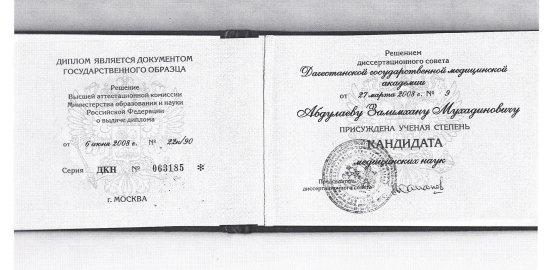 ДИПЛОМ ЯВЛЯЕТСЯ ДОКУМЕНТОМ
ГОСУДАРСТВЕННОГО ОБРАЗЦА
Решение
Высшей аттестационной комиссии
Министерства образования и науки
Российской Федерации
о выдаче диплома
от 6 июня 2008 г. № 22к/90
Серия ДКН № 063185 *
г. МОСКВА
Решением
диссертационного совета
Дагестанской государственной медицинской
академии
от 27 марта 2008 г. № 9
Абдулаеву Залимхану Мухадиновичу
ПРИСУЖДЕНА УЧЕНАЯ СТЕПЕНЬ
КАНДИДАТА
медицинских наук
Председатель
диссертационного совета